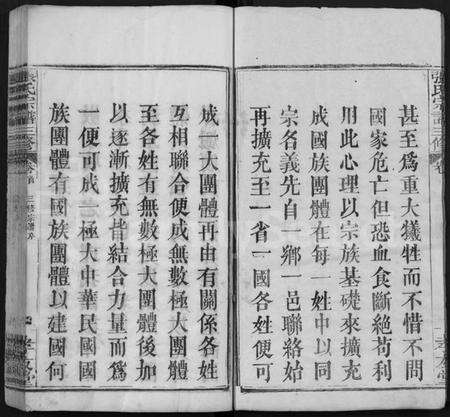 張氏宗譜三修
甚至爲重大犧牲而不惜不問
國家危亡但恐血食斷絶苟利
用此心理以宗族基礎來擴充
成國族團體在每一姓中以同
宗名義先自一鄉一邑聯絡始
再擴充至一省一國各姓便可
成一大團體再由有關係各姓
互相聯合便成無數極大團體
至各姓有無數極大團體後加
以逐漸擴充皆結合力量而爲
一便可成一極大中華民國國
族團體有國族團體以建國何
張氏宗譜三修